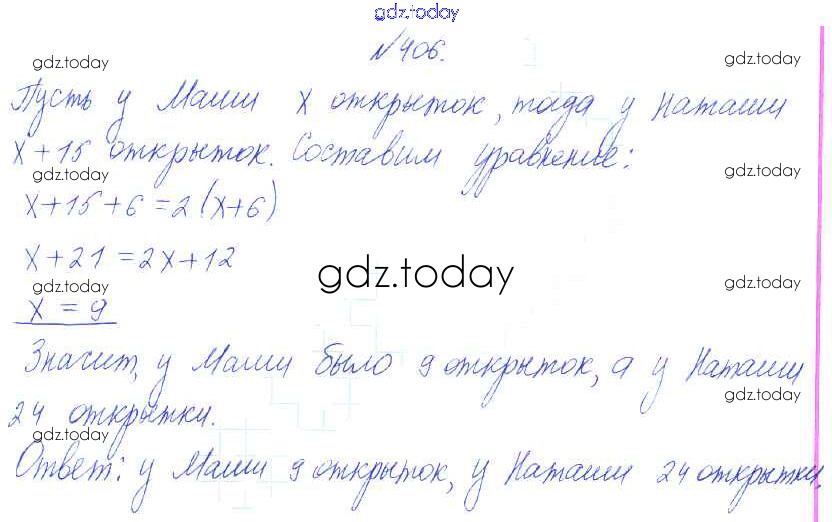 gdz.today
№406.
gdz.today gdz.today
Пусть у Маши х открыток, тогда у Наташи
х+15 открыток. Составим уравнение:
gdz.today gdz.today
х+15+6=2(х+6)
х+21=2х+12
gdz.today
gdz.today gdz.today
х = 9
Значит, у Маши было 9 открыток, а у Наташи
gdz.today
24 открытки.
gdz.today
Ответ: у Маши 9 открыток, у Наташи 24 открытки.